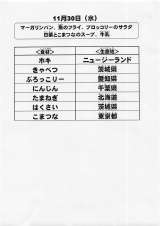 11月30日（水）
マーガリンパン、魚のフライ、ブロッコリーのサラダ
白菜とこまつなのスープ、牛乳
＜食材＞ ＜生産地＞
ホキ ニュージーランド
きゃべつ 茨城県
ぶろっこりー 愛知県
にんじん 千葉県
たまねぎ 北海道
はくさい 茨城県
こまつな 東京都